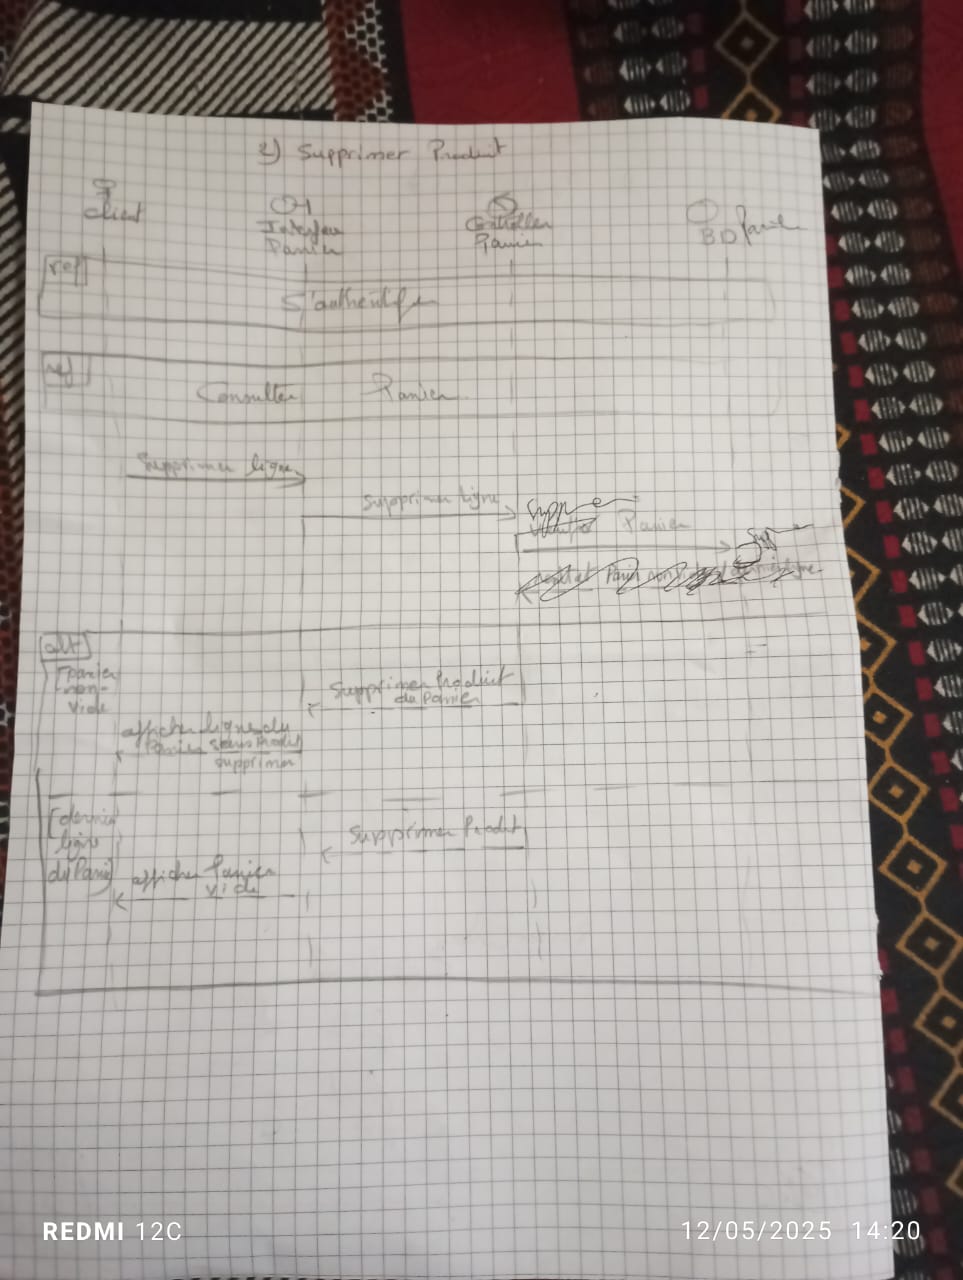 2) Supprimer Produit
Client
Interface
Panier
Controller
Panier
BD Panier
ref
S'authentifier
ref
Consulter Panier
Supprimer ligne
Supprimer ligne
Panier
alt
[panier
non-
vide
Supprimer Produit
du Panier
afficher ligne du
Panier sans Produit
supprimer
[dernier
ligne
du Panier]
Supprimer Produit
afficher Panier
vide
REDMI 12C
12/05/2025 14:20